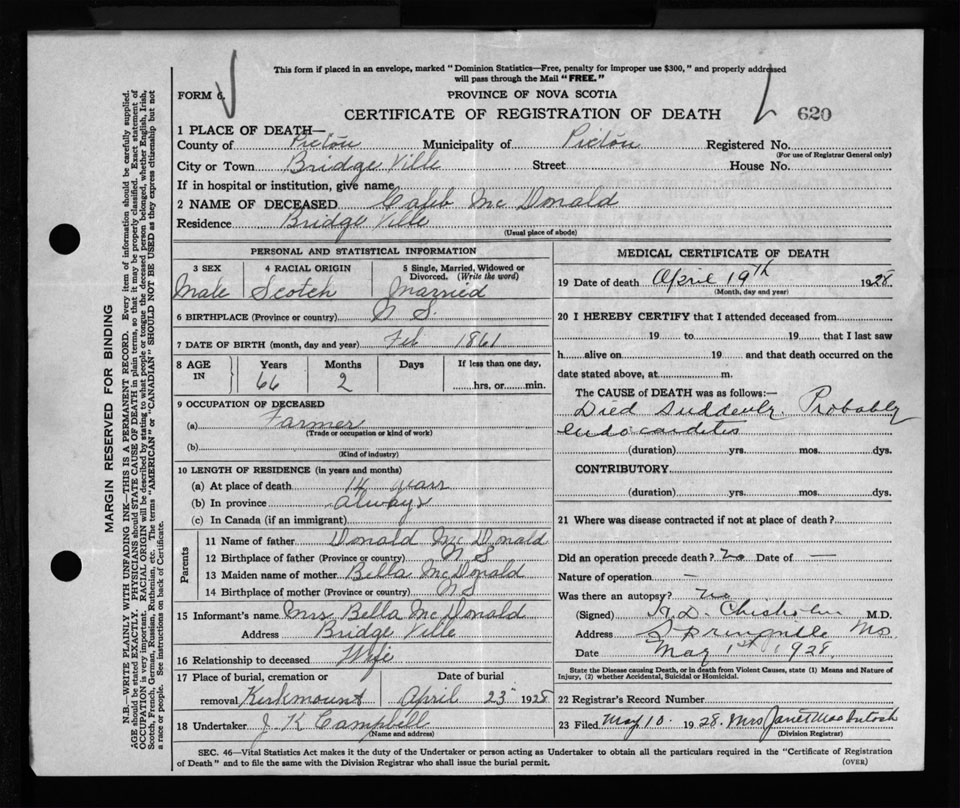 This form if placed in an envelope, marked "Dominion Statistics—Free, penalty for improper use $300," and properly addressed
will pass through the Mail "FREE."
FORM 6.
PROVINCE OF NOVA SCOTIA
CERTIFICATE OF REGISTRATION OF DEATH
620
1 PLACE OF DEATH—
County of Pictou Municipality of Pictou Registered No.
(For use of Registrar General only)
City or Town Bridge Ville Street House No.
If in hospital or institution, give name
2 NAME OF DECEASED Caleb Mc Donald
Residence Bridge Ville
(Usual place of abode)
PERSONAL AND STATISTICAL INFORMATION
3 SEX 4 RACIAL ORIGIN 5 Single, Married, Widowed or Divorced. (Write the word)
Male Scotch Married
6 BIRTHPLACE (Province or country) N S.
7 DATE OF BIRTH (month, day and year) Feb 1861
8 AGE IN Years Months Days If less than one day,
66 2 hrs. or min.
9 OCCUPATION OF DECEASED
(a) Farmer
(Trade or occupation or kind of work)
(b)
(Kind of industry)
10 LENGTH OF RESIDENCE (in years and months)
(a) At place of death 14 years
(b) In province Always
(c) In Canada (if an immigrant)
Parents
11 Name of father Donald Mc Donald
12 Birthplace of father (Province or country) N S
13 Maiden name of mother Bella McDonald
14 Birthplace of mother (Province or country) N S
15 Informant's name Mrs Bella McDonald
Address Bridge Ville
16 Relationship to deceased Wife
17 Place of burial, cremation or Date of burial
removal Kirkmount April 23 1928
18 Undertaker J. K Campbell
(Name and address)
MEDICAL CERTIFICATE OF DEATH
19 Date of death April 19th 1928
(Month, day and year)
20 I HEREBY CERTIFY that I attended deceased from
19 to 19 that I last saw
h alive on 19 and that death occurred on the
date stated above, at m.
The CAUSE of DEATH was as follows:
Died Suddenly. Probably
endocarditis
(duration) yrs. mos. dys.
CONTRIBUTORY
(duration) yrs. mos. dys.
21 Where was disease contracted if not at place of death?
Did an operation precede death? no Date of —
Nature of operation —
Was there an autopsy? no
(Signed) Chisholm M.D.
Address Springville
Date May 1st 1928.
State the Disease causing Death, or in death from Violent Causes, state (1) Means and Nature of Injury, (2) whether Accidental, Suicidal or Homicidal.
22 Registrar's Record Number
23 Filed May 10. 1928. Mrs Janet MacIntosh
(Division Registrar)
SEC. 46—Vital Statistics Act makes it the duty of the Undertaker or person acting as Undertaker to obtain all the particulars required in the "Certificate of Registration
of Death" and to file the same with the Division Registrar who shall issue the burial permit.
(OVER)
MARGIN RESERVED FOR BINDING
N.B.—WRITE PLAINLY WITH UNFADING INK—THIS IS A PERMANENT RECORD. Every item of information should be carefully supplied.
AGE should be stated EXACTLY. PHYSICIANS should STATE CAUSE OF DEATH in plain terms, so that it may be properly classified. Exact statement of
OCCUPATION is very important. RACIAL ORIGIN will be described by stating to what people or tongue the deceased person belonged, whether English, Irish,
Scotch, French, German, Russian, Ruthenian, etc. The terms "AMERICAN" or "CANADIAN" SHOULD NOT BE USED as they express citizenship but not
a race or people. See instructions on back of Certificate.